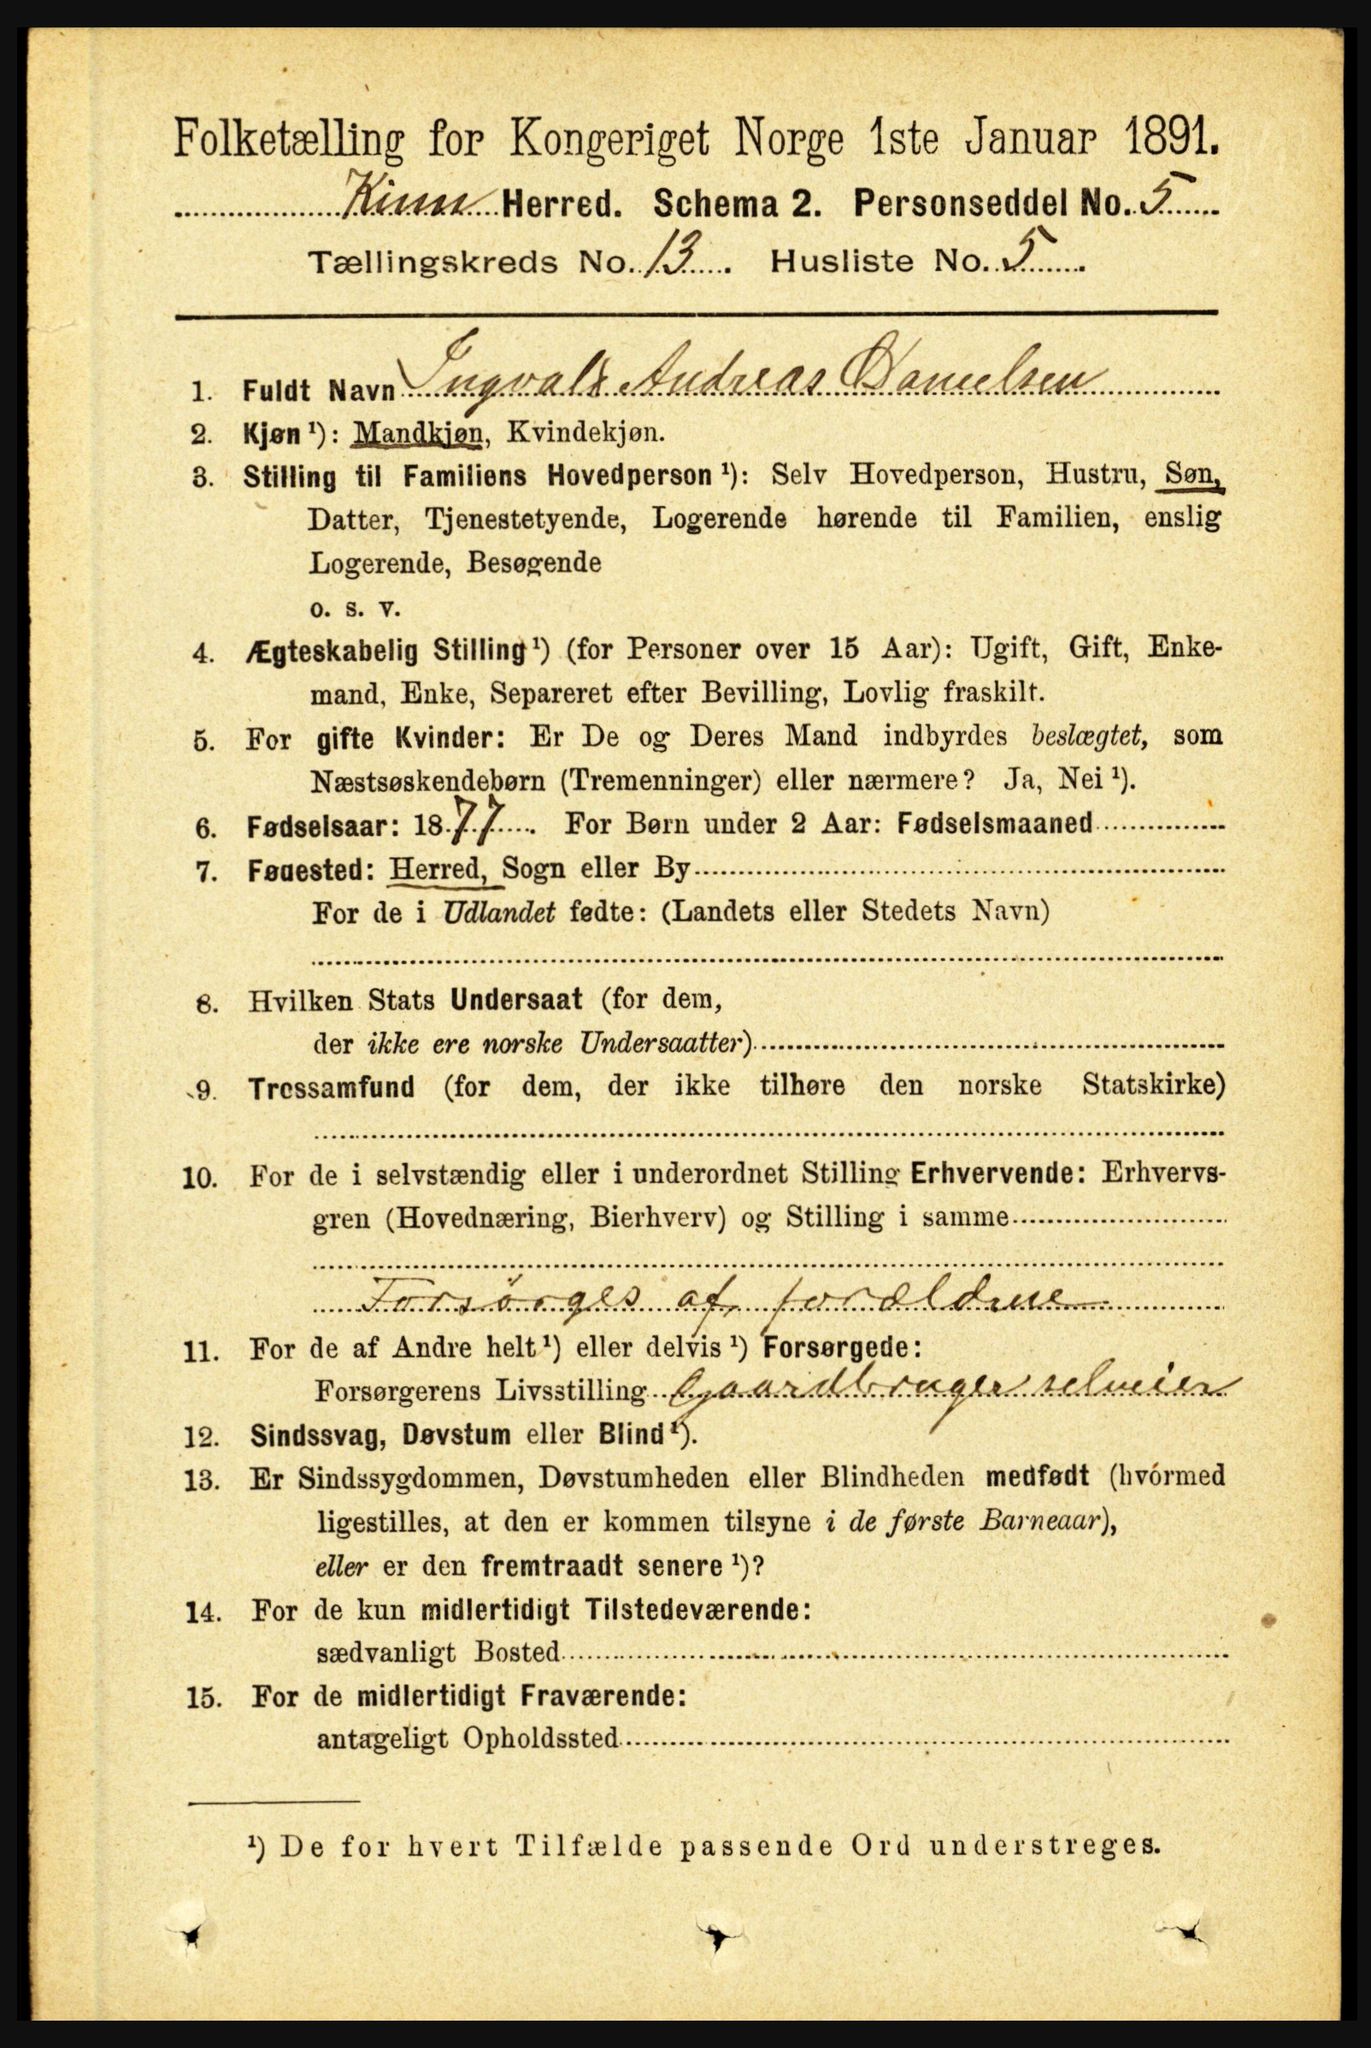 Folketælling for Kongeriget Norge 1ste Januar 1891.
Kinn Herred. Schema 2. Personseddel No. 5
Tællingskreds No. 13. Husliste No. 5
1. Fuldt Navn Ingvald Andreas Danielsen
2. Kjøn¹): Mandkjøn, Kvindekjøn.
3. Stilling til Familiens Hovedperson¹): Selv Hovedperson, Hustru, Søn,
Datter, Tjenestetyende, Logerende hørende til Familien, enslig
Logerende, Besøgende
o. s. v.
4. Ægteskabelig Stilling¹) (for Personer over 15 Aar): Ugift, Gift, Enke-
mand, Enke, Separeret efter Bevilling, Lovlig fraskilt.
5. For gifte Kvinder: Er De og Deres Mand indbyrdes beslægtet, som
Næstsøskendebørn (Tremenninger) eller nærmere? Ja, Nei¹).
6. Fødselsaar: 1877. For Børn under 2 Aar: Fødselsmaaned
7. Fødested: Herred, Sogn eller By
For de i Udlandet fødte: (Landets eller Stedets Navn)
8. Hvilken Stats Undersaat (for dem,
der ikke ere norske Undersaatter)
9. Trossamfund (for dem, der ikke tilhøre den norske Statskirke)
10. For de i selvstændig eller i underordnet Stilling Erhvervende: Erhvervs-
gren (Hovednæring, Bierhverv) og Stilling i samme
Forsørges af forældrene
11. For de af Andre helt¹) eller delvis¹) Forsørgede:
Forsørgerens Livsstilling Gaardbruger selveier
12. Sindssvag, Døvstum eller Blind¹).
13. Er Sindssygdommen, Døvstumheden eller Blindheden medfødt (hvormed
ligestilles, at den er kommen tilsyne i de første Barneaar),
eller er den fremtraadt senere¹)?
14. For de kun midlertidigt Tilstedeværende:
sædvanligt Bosted
15. For de midlertidigt Fraværende:
antageligt Opholdssted
¹) De for hvert Tilfælde passende Ord understreges.